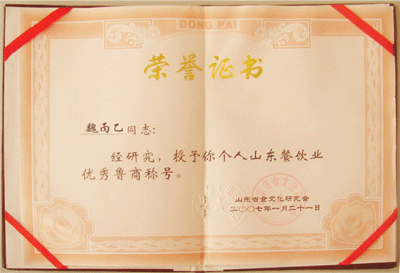 DONG PAI
荣誉证书
魏丙乙同志:
经研究,授予你个人山东餐饮业
优秀鲁商称号。
山东省食文化研究会
二〇〇七年一月二十一日